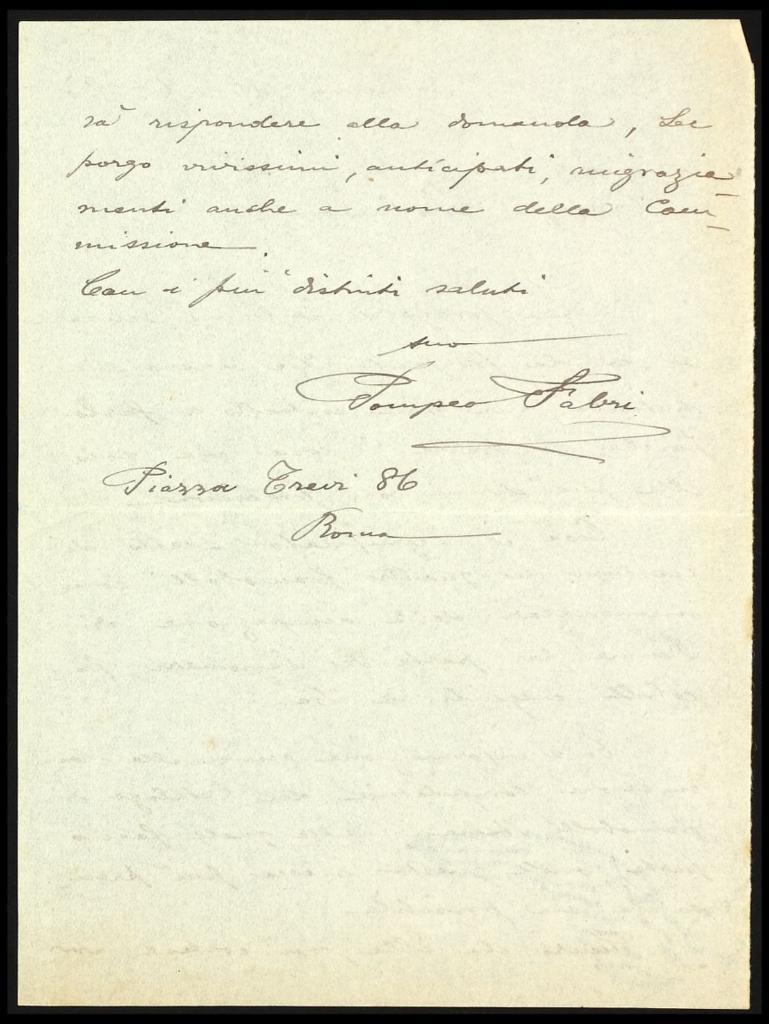 rà rispondere alla domanda, Le
porgo vivissimi, anticipati, ringrazia-
menti anche a nome della Com-
missione.
Con i più distinti saluti
suo
Pompeo Fabri
Piazza Trevi 86
Roma